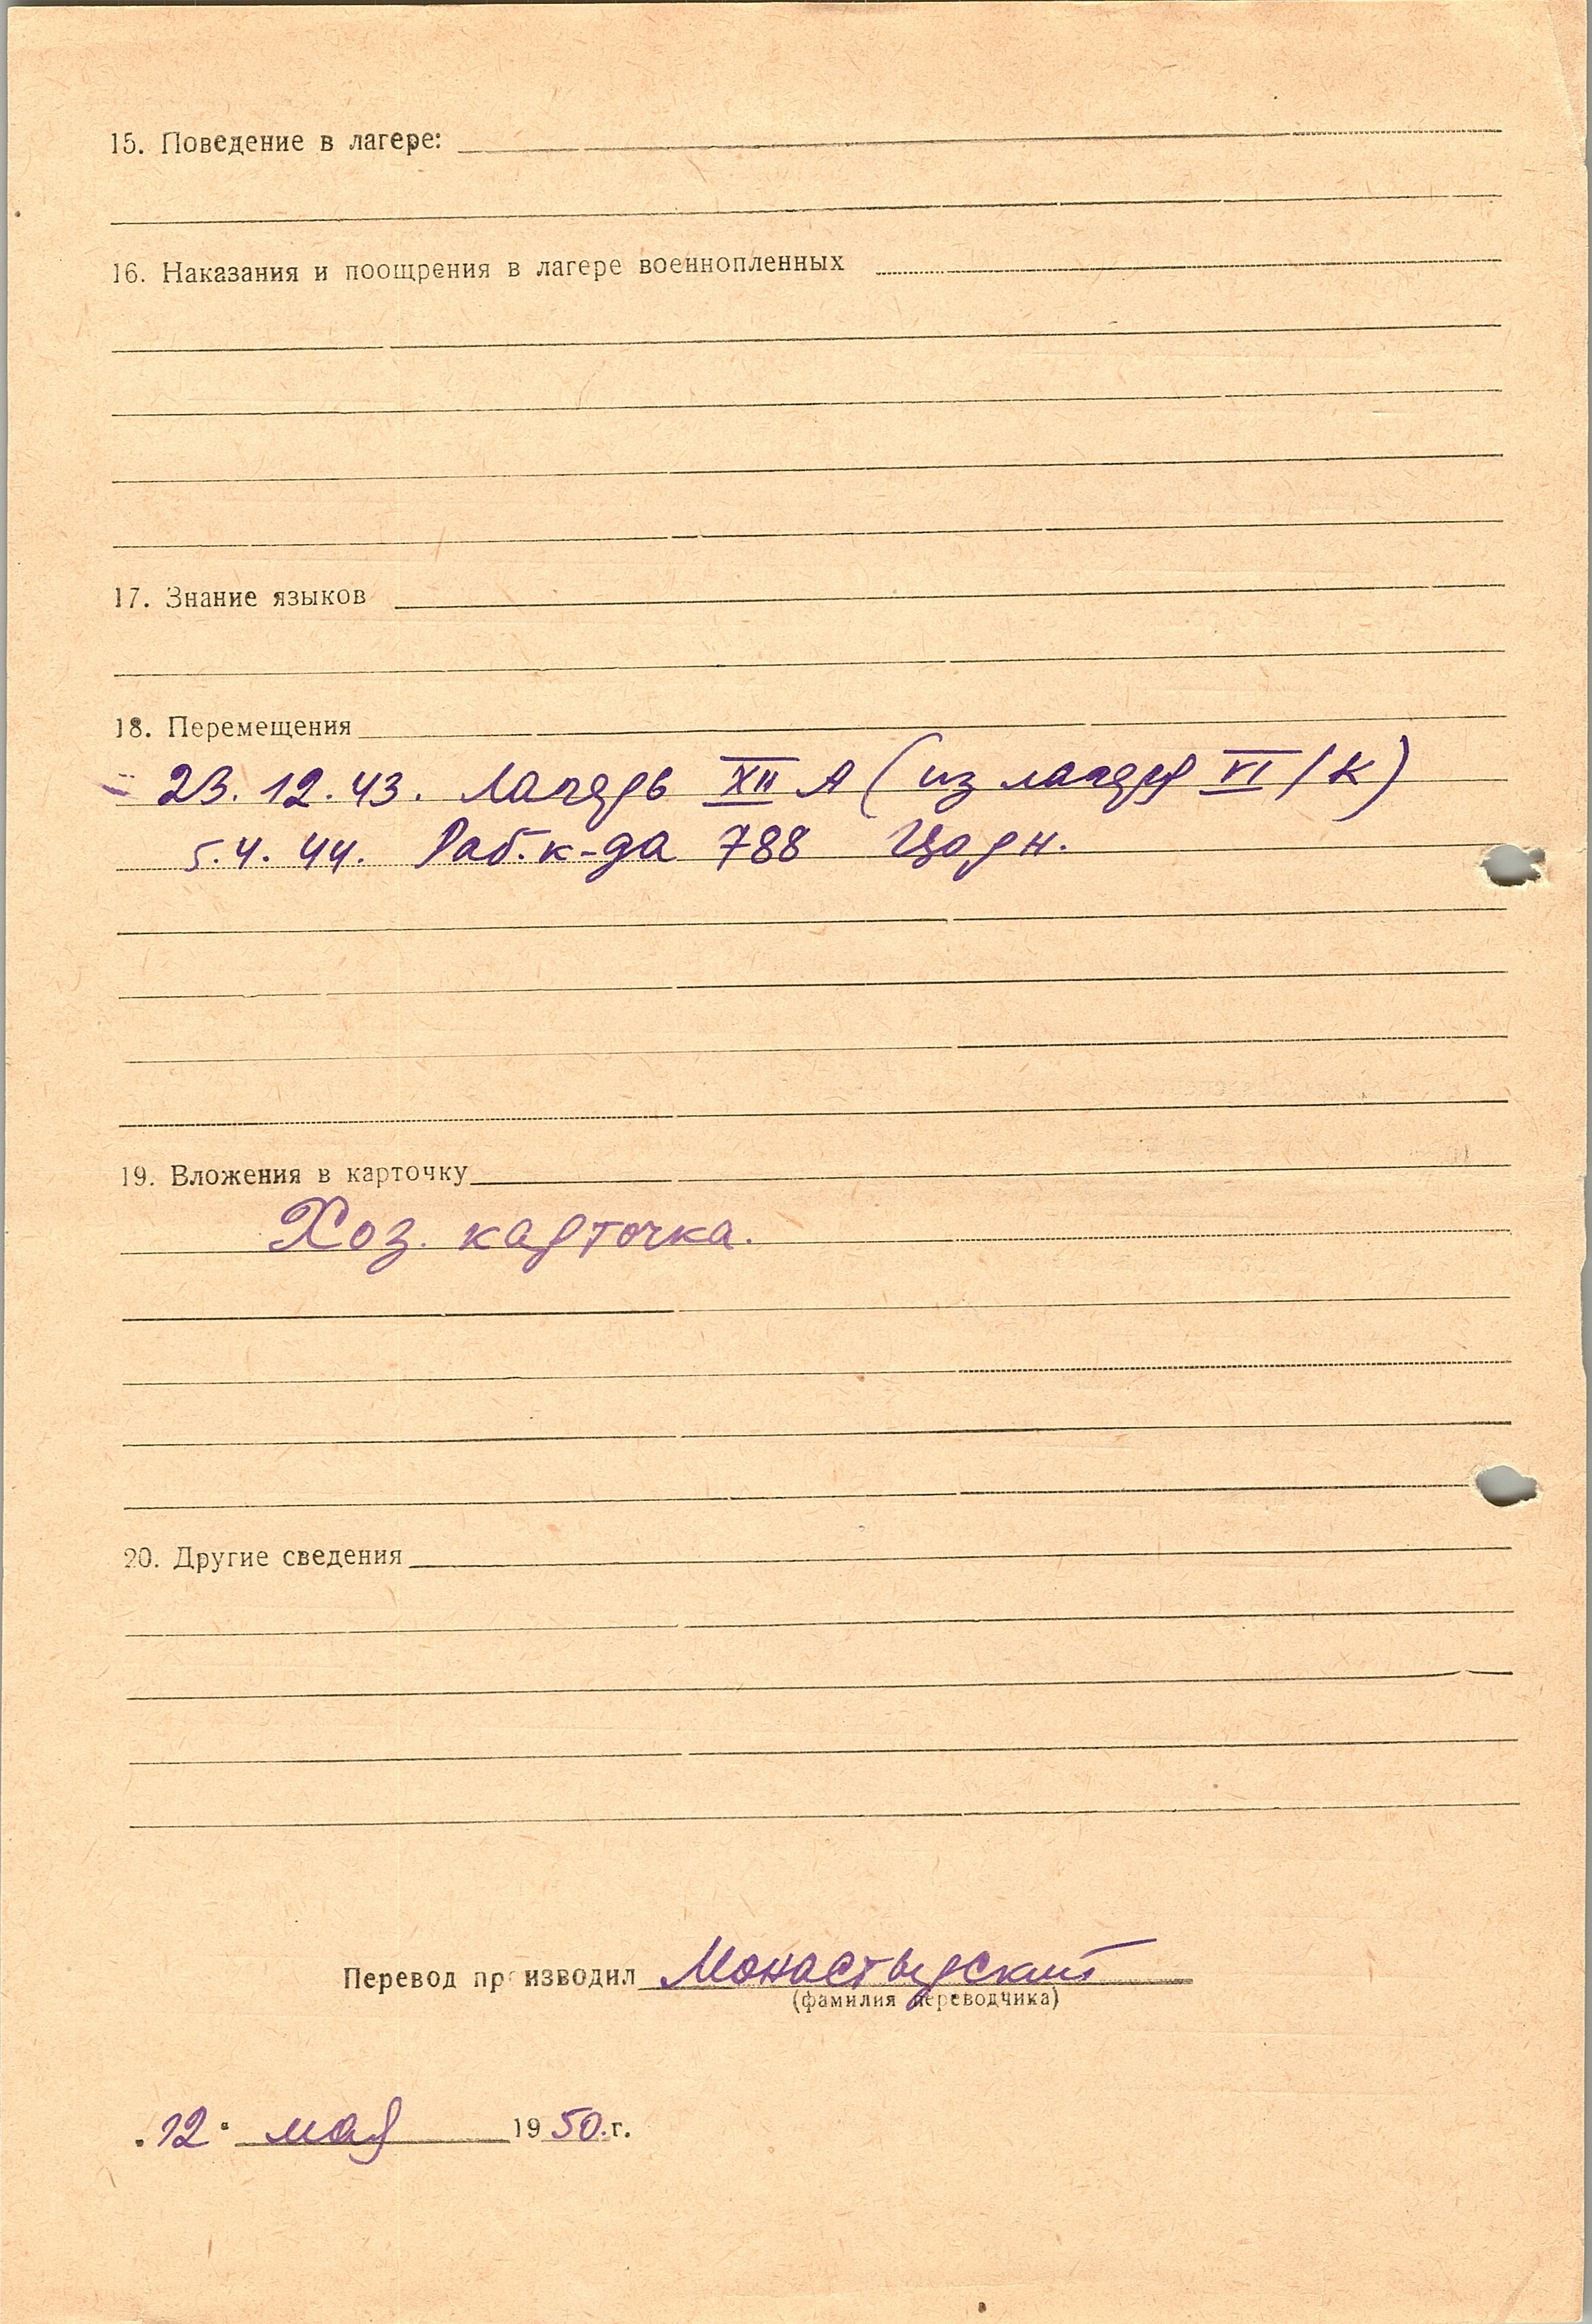 15. Поведение в лагере:
16. Наказания и поощрения в лагере военнопленных
17. Знание языков
18. Перемещения
23. 12. 43. Лагерь XII A (из лагеря VI/К)
5. 4. 44. Раб. к-да 788 Цорн.
19. Вложения в карточку
Хоз. карточка.
20. Другие сведения
Перевод производил Монастырский
(фамилия переводчика)
„12“ мая 1950 г.